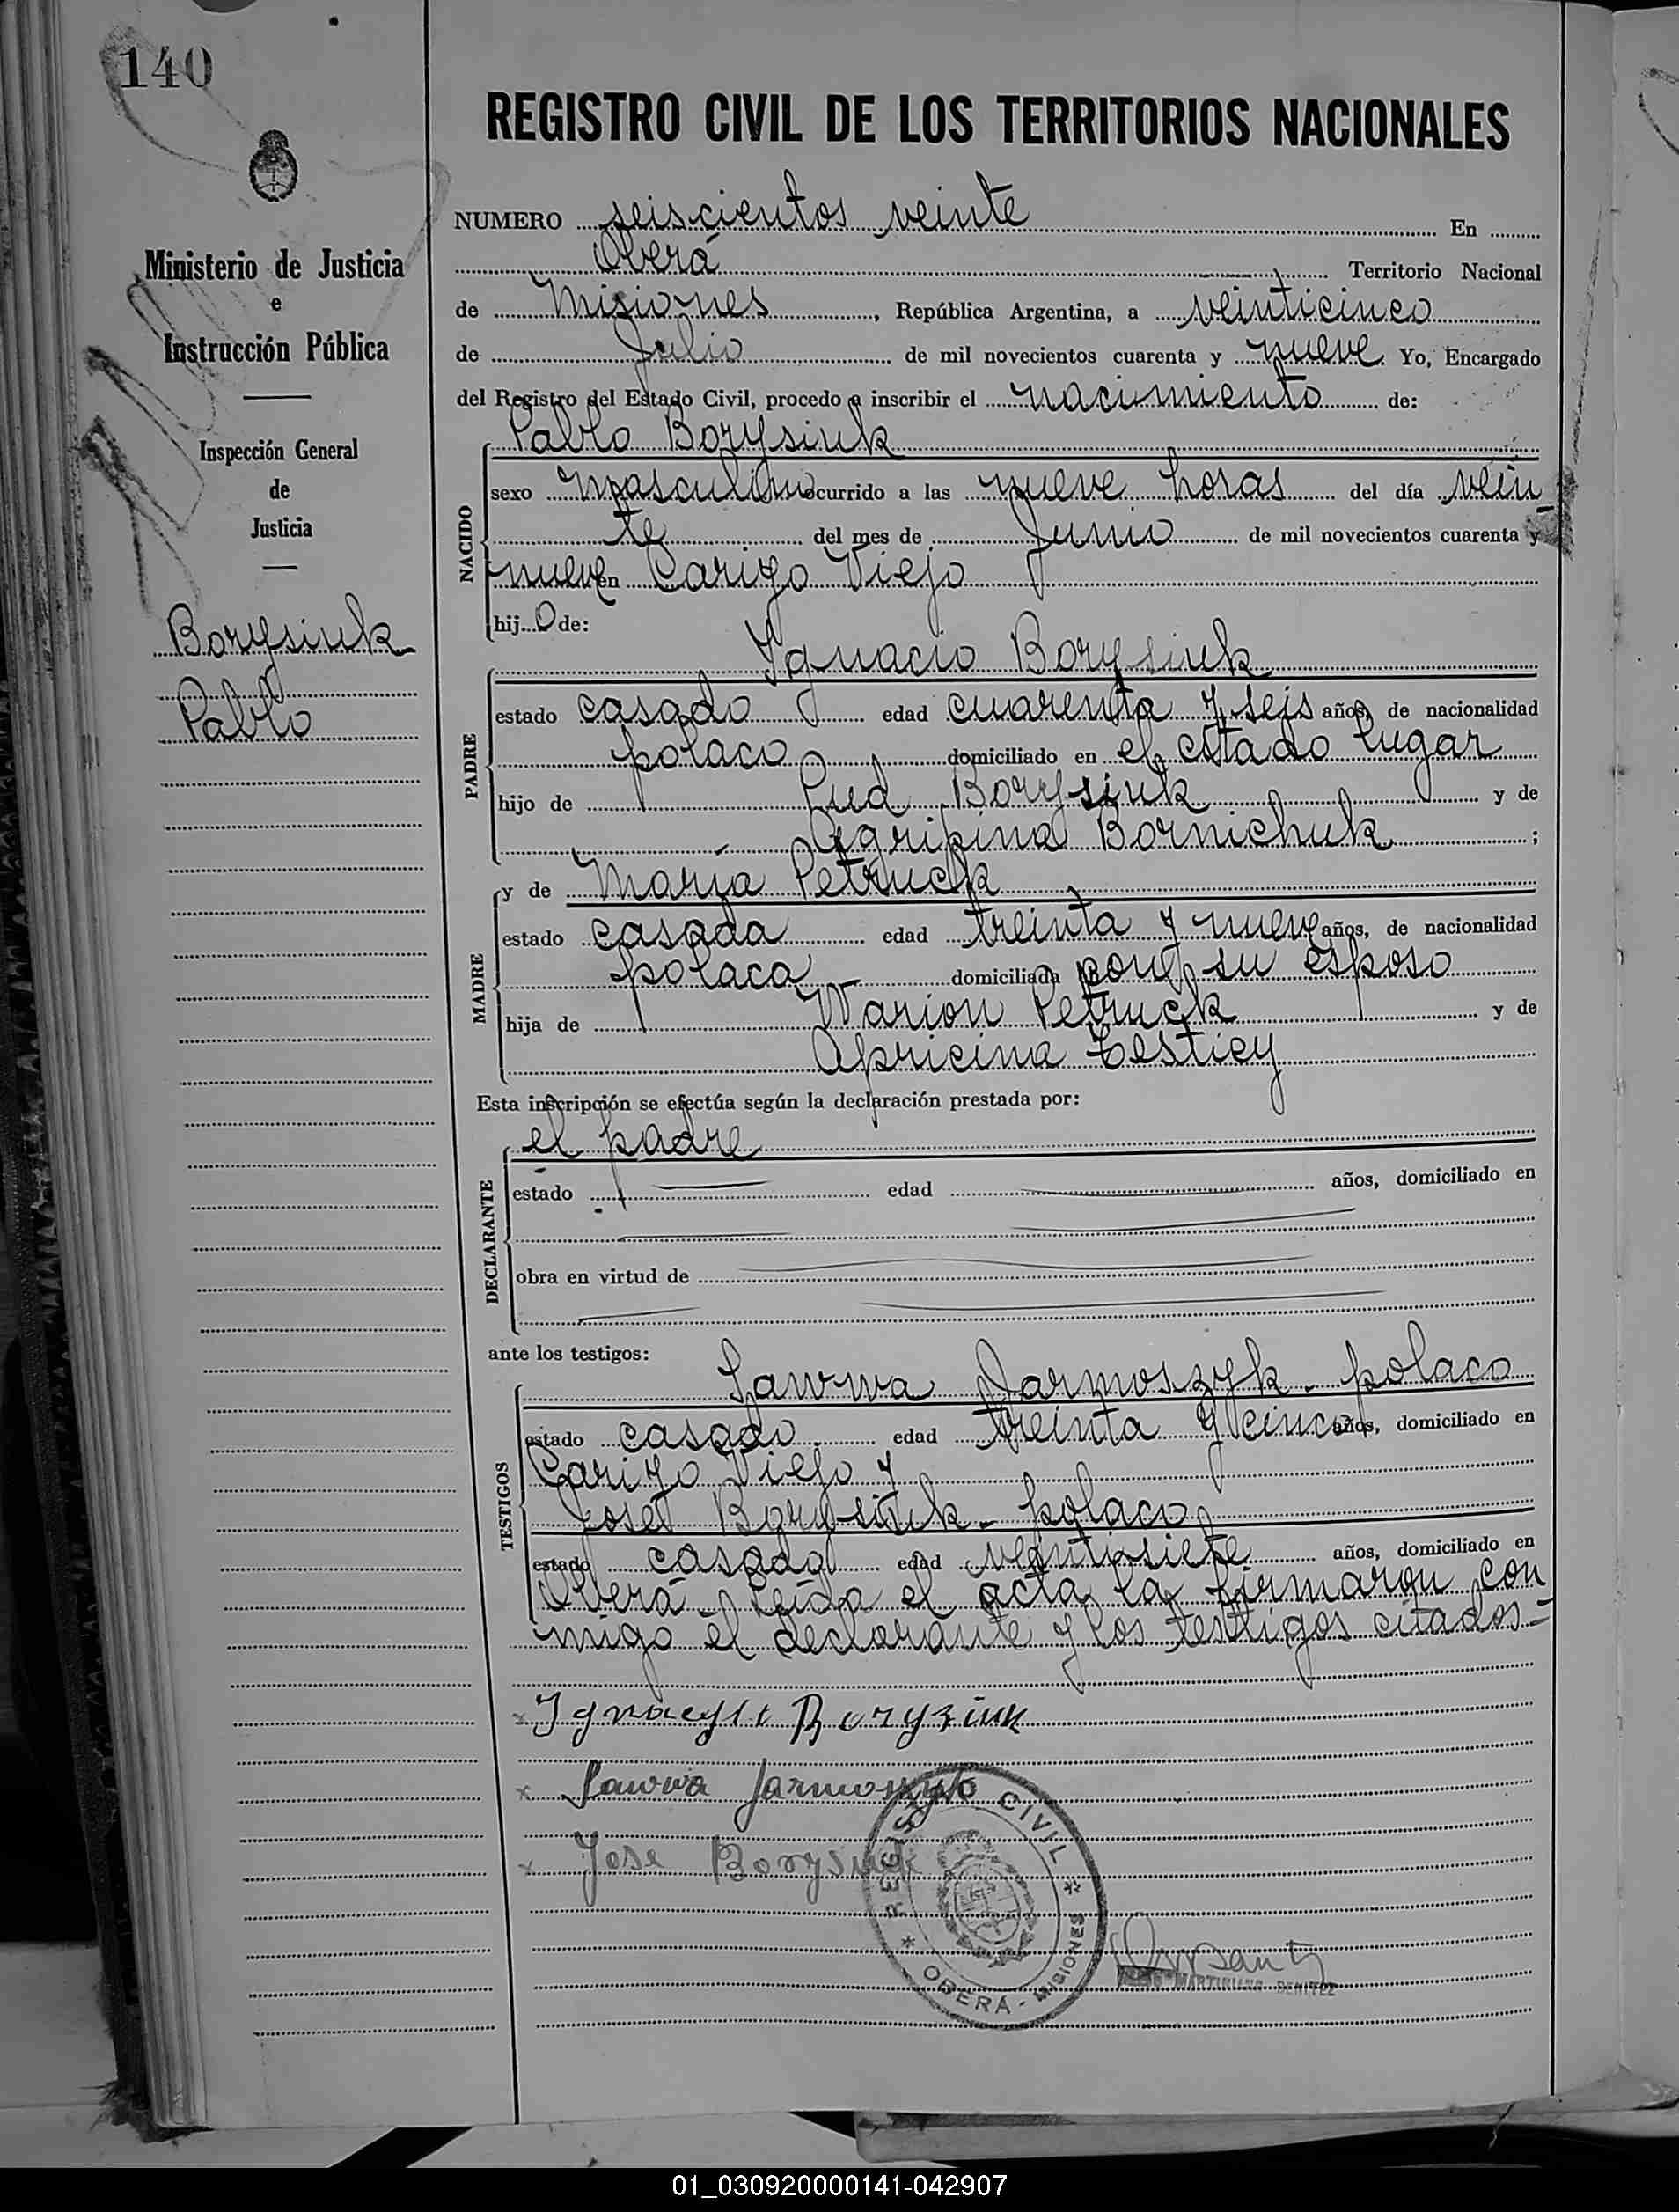 140
REGISTRO CIVIL DE LOS TERRITORIOS NACIONALES
Ministerio de Justicia
e
Instrucción Pública
Inspección General
de
Justicia
Borysiuk
Pablo
NUMERO seiscientos veinte En
Oberá Territorio Nacional
de Misiones, República Argentina, a veinticinco
de Julio de mil novecientos cuarenta y nueve. Yo, Encargado
del Registro del Estado Civil, procedo a inscribir el nacimiento de:
Pablo Borysiuk
NACIDO
sexo masculino ocurrido a las nueve horas del día vein
te del mes de Junio de mil novecientos cuarenta y
nueve en Cariyo Viejo
hijo de:
Ignacio Borysiuk
PADRE
estado casado edad cuarenta y seis años, de nacionalidad
polaco domiciliado en el citado lugar
hijo de Lud Borysiuk y de
Agripina Bornichuk ;
y de María Petruck
MADRE
estado casada edad treinta y nueve años, de nacionalidad
polaca domiciliada con su esposo
hija de Warion Petruck y de
Apricina Testiey
Esta inscripción se efectúa según la declaración prestada por:
el padre
DECLARANTE
estado edad años, domiciliado en
obra en virtud de
ante los testigos:
Sawwa Jarmoszyk - polaco
TESTIGOS
estado casado edad treinta y cinco años, domiciliado en
Cariyo Viejo y
José Borysiuk - polaco
estado casado edad veintisiete años, domiciliado en
Oberá - Leída el acta la firmaron con
migo el declarante y los testigos citados =
x Ignacy Boryziuk
x Sawwa Jarmoszyk
x Jose Borysiuk
REGISTRO CIVIL
* OBERÁ - MISIONES *
MARTINIANO BENITEZ
01_030920000141-042907